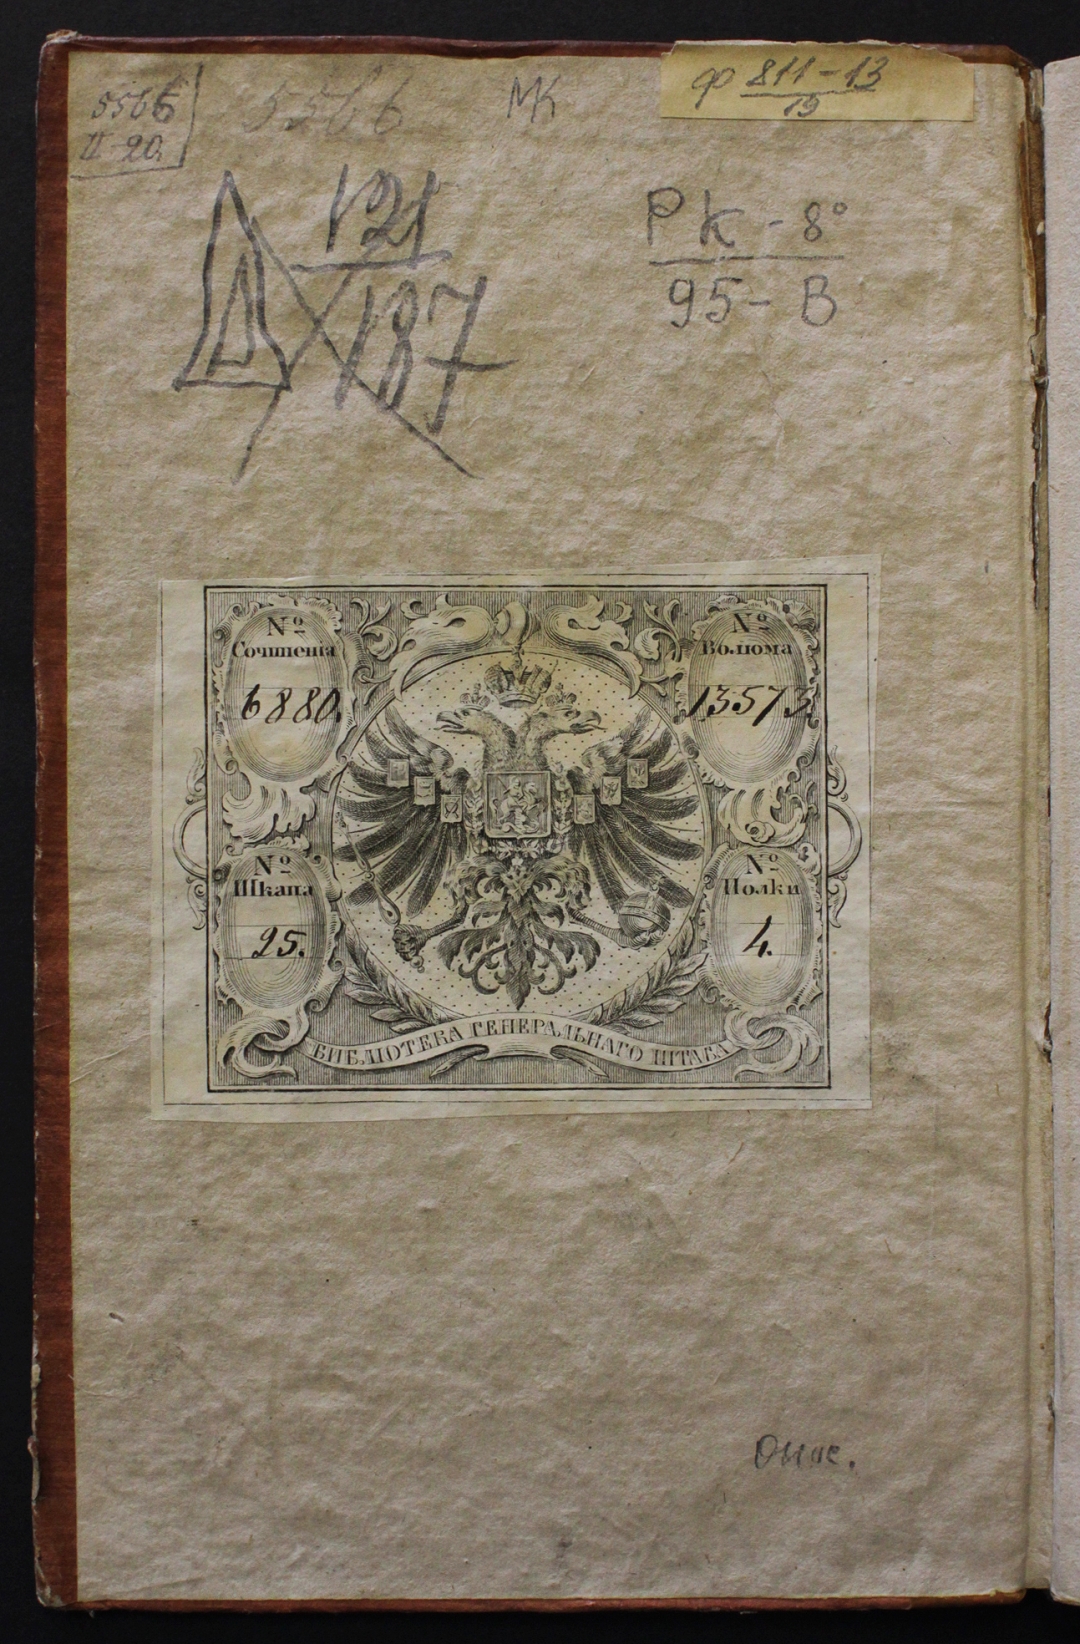 5566
II-20.
5566
МК
Ф 811-13
19
Д 121
187
Рк - 8°
95 - В
№
Сочиненія
6880.
№
Волюма
13573.
№
Шкапа
25.
№
Полки
4.
БИБЛІОТЕКА ГЕНЕРАЛЬНАГО ШТАБА
Опис.